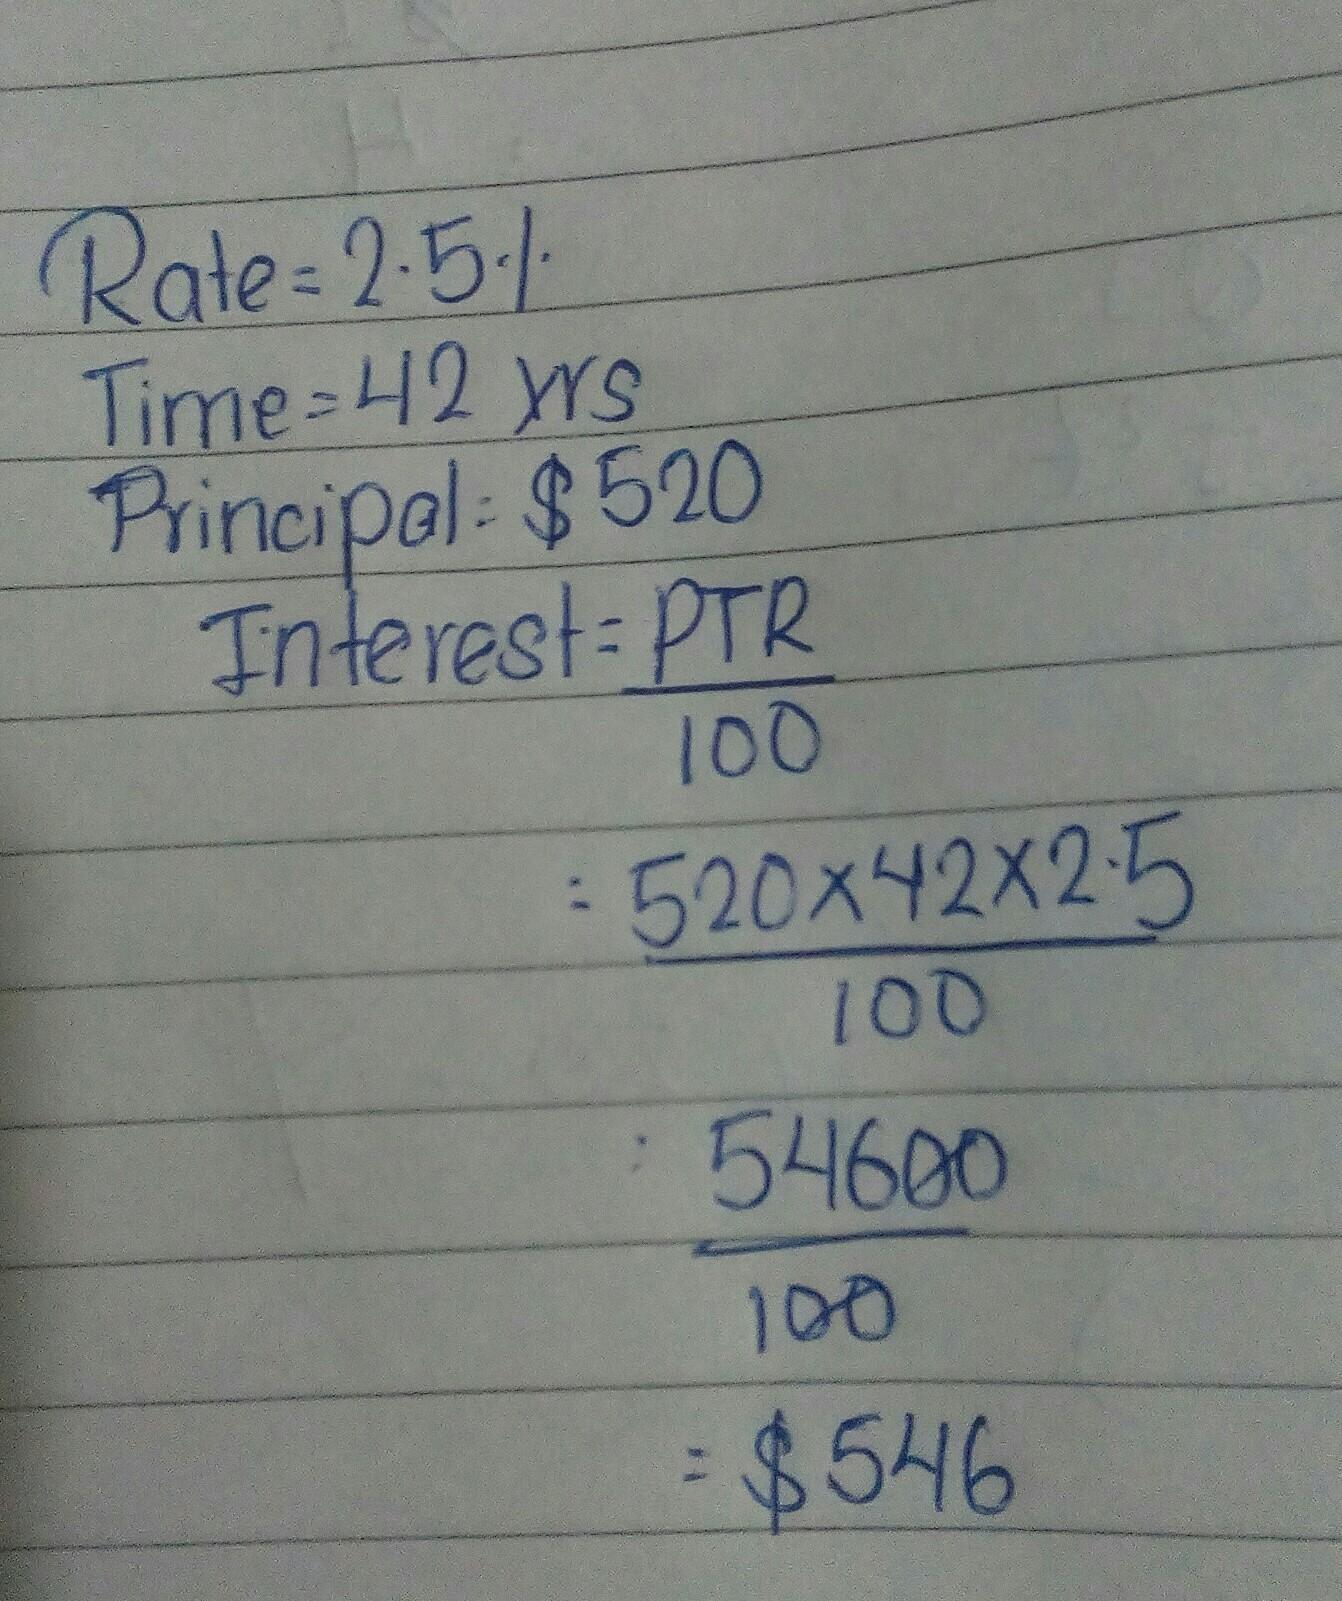 Rate=2.5%
Time=42 yrs
Principal=$520
Interest=PTR
100
=520x42x2.5
100
=54600
100
=$546